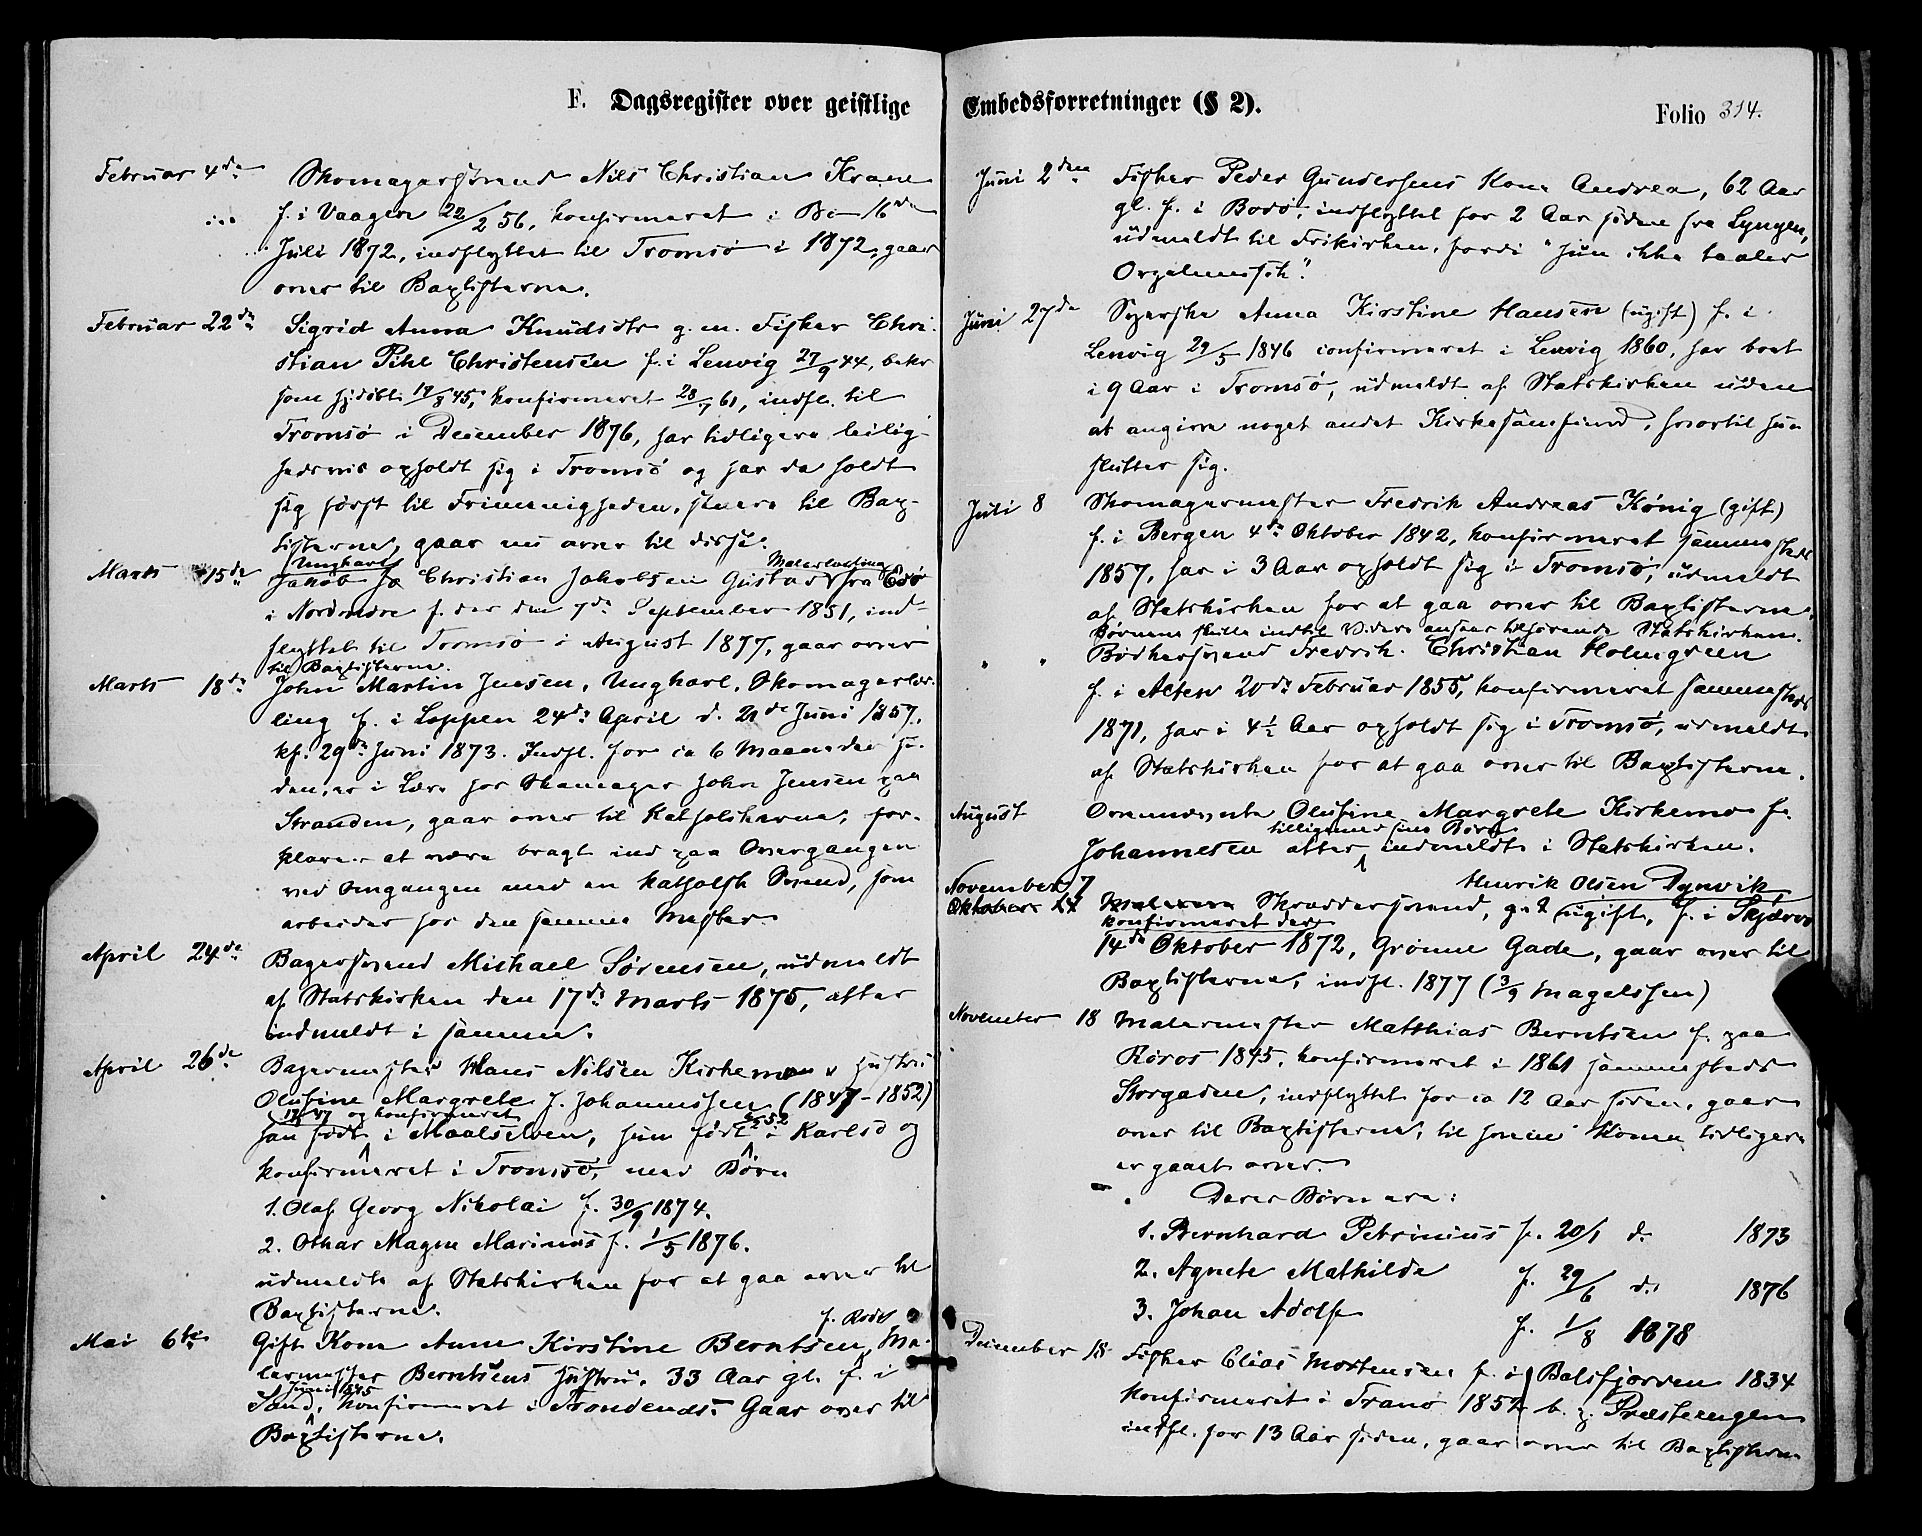 F. Dagsregister over geistlige
Februar 4de Skomagersvend Nils Christian Krane
f. i Vaagen 22/2 56, konfirmeret i Bè 16de
Juli 1872, indflyttet til Tromsö i 1872, gaar
over til Baptisterne.
Februar 22de Sigrid Anna Knudsdtr g. m. Fisker Chri-
stian Pihl Christensen f. i Lenvig 27/9 44,
som hjdöbt 45, konfirmeret 28/7 61, indfl. til
Tromsö i December 1876, har tidligere leilig-
hedsvis opholdt sig i Tromsö og har da holdt
sig först til Frimenigheden, senere til Bap-
tisterne, gaar nu over til disse.
Ungkarl Malerlærling
Marts 15de Jakob Christian Jakobsen Gustad fra Edö
i Nordmöre f. der den 7de September 1851, ind-
flyttet til Tromsö i August 1877, gaar over
til Baptisterne.
Marts 18de John Martin Jensen, Ungkarl, Skomagerlær-
ling f. i Loppen 24de April d. 21de Juni 1857,
kf. 29de Juni 1873. Indfl. for ca 6 Maaneder si-
den, er i Lære hos Skomager John Jensen paa
Stranden, gaar over til Katholikerne, for-
klarer at være bragt ind paa Overgangen
ved Omgangen med en katholsk Svend, som
arbeider hos den samme Mester.
April 24de Bagersvend Michael Sörensen, udmeldt
af Statskirken den 17de Marts 1875, atter
indmeldt i samme.
April 26de Bagermester Hans Nilsen Kirkemo & Hustru
Olufine Margrete f. Johannessen (1847-1852)
47 og konfirmeret 52
han födt i Maalselven, hun födt i Karlsö og
konfirmeret i Tromsö, med Börn
1. Olaf Georg Nikolai f. 30/9 1874.
2. Othar Magn Marinus f. 1/5 1876.
udmeldte af Statskirken for at gaa over til
Baptisterne.
Mai 6te Gift Kone Anne Kirstine Berntsen, f. Ma-
lermester Berntsens Hustru, 33 Aar gl. f. i
Juni 1845
Sand, konfirmeret i Trondenes. Gaar over til
Baptisterne.
Embedsforretninger (§ 2).
Folio 314.
Juni 2den Fisker Peder Gundersens Kone Andrea, 62 Aar
gl. f. i Bodö, indflyttet for 2 Aar siden fra Lyngen,
udmeldt til Frikirken, fordi "hun ikke taaler
Orgelmusik".
Juni 27de Syerske Anna Kirstine Hansen (ugift) f. i
Lenvig 29/5 1846 confirmeret i Lenvig 1860, har boet
i 9 Aar i Tromsö, udmeldt af Statskirken uden
at angive noget andet Kirkesamfund, hvortil hun
slutter sig.
Juli 8 Skomagermester Fredrik Andreas König (gift)
f. i Bergen 4de Oktober 1842, konfirmeret sammesteds
1857, har i 3 Aar opholdt sig i Tromsö, udmeldt
af Statskirken for at gaa over til Baptisterne.
Börnene skulle indtil Videre ansees tilhörende Statskirken.
" " Bödkersvend Fredrik Christian Holmgreen
f. i Alten 20de Februar 1855, konfirmeret sammesteds
1871, har i 4½ Aar opholdt sig i Tromsö, udmeldt
af Statskirken for at gaa over til Baptisterne.
August Ovennævnte Olufine Margrete Kirkemo f.
tilligemed sine Börn
Johannesen atter indmeldt i Statskirken.
November 7 Henrik Olsen Dynvik
Oktober 24 Skræddersvend, ugift, f. i Skjærvö
konfirmeret der
14de Oktober 1872, Grönne Gade, gaar over til
Baptisterne, indfl. 1877 (3/9 Magelssen)
November 18 Malermester Matthias Berntsen f. paa
Röros 1845, konfirmeret i 1861 sammesteds
Storgaden, indflyttet for ca 12 Aar siden, gaar
over til Baptisterne, til hvem Konen tidligere
er gaaet over.
Deres Börn ere:
1. Bernhard Petrinius f. 20/1 d. 1873
2. Agnete Mathilde f. 29/6 d. 1876
3. Johan Adolf f. 1/8 1878
December 18 Fisker Elias Mortensen f. i Balsfjorden 1834
konfirmeret i Tranö 1852 b. p. Præsteengen
indfl. for 13 Aar siden, gaar over til Baptisterne